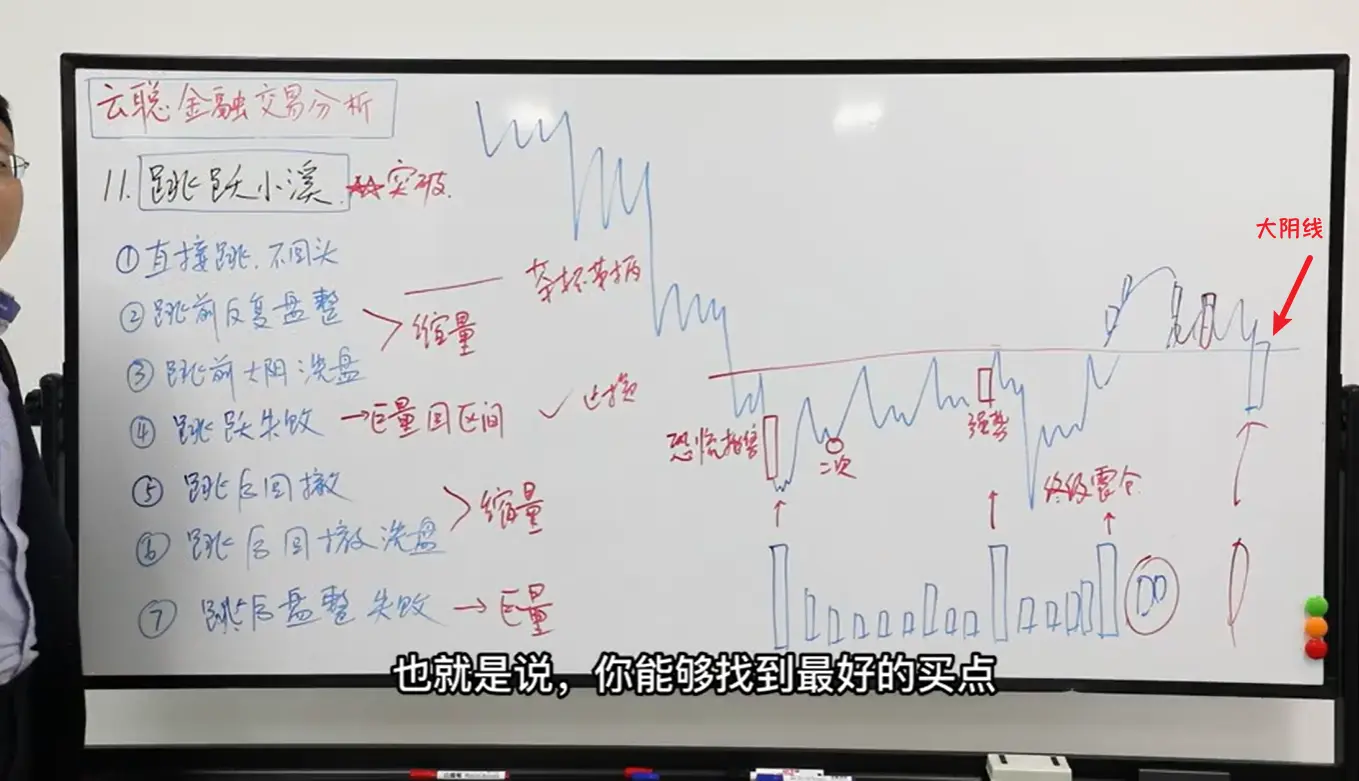 云聪金融交易分析
11. 跳跃小溪 突破
① 直接跳.不回头
② 跳前反复盘整
③ 跳前大阴洗盘
缩量
茶杯带柄
④ 跳跃失败 →巨量回区间 ✓ 止损
⑤ 跳后回撤
⑥ 跳后回撤洗盘
缩量
⑦ 跳后盘整失败 →巨量
大阴线
恐慌抛售
二次
强势
终级震仓
也就是说，你能够找到最好的买点